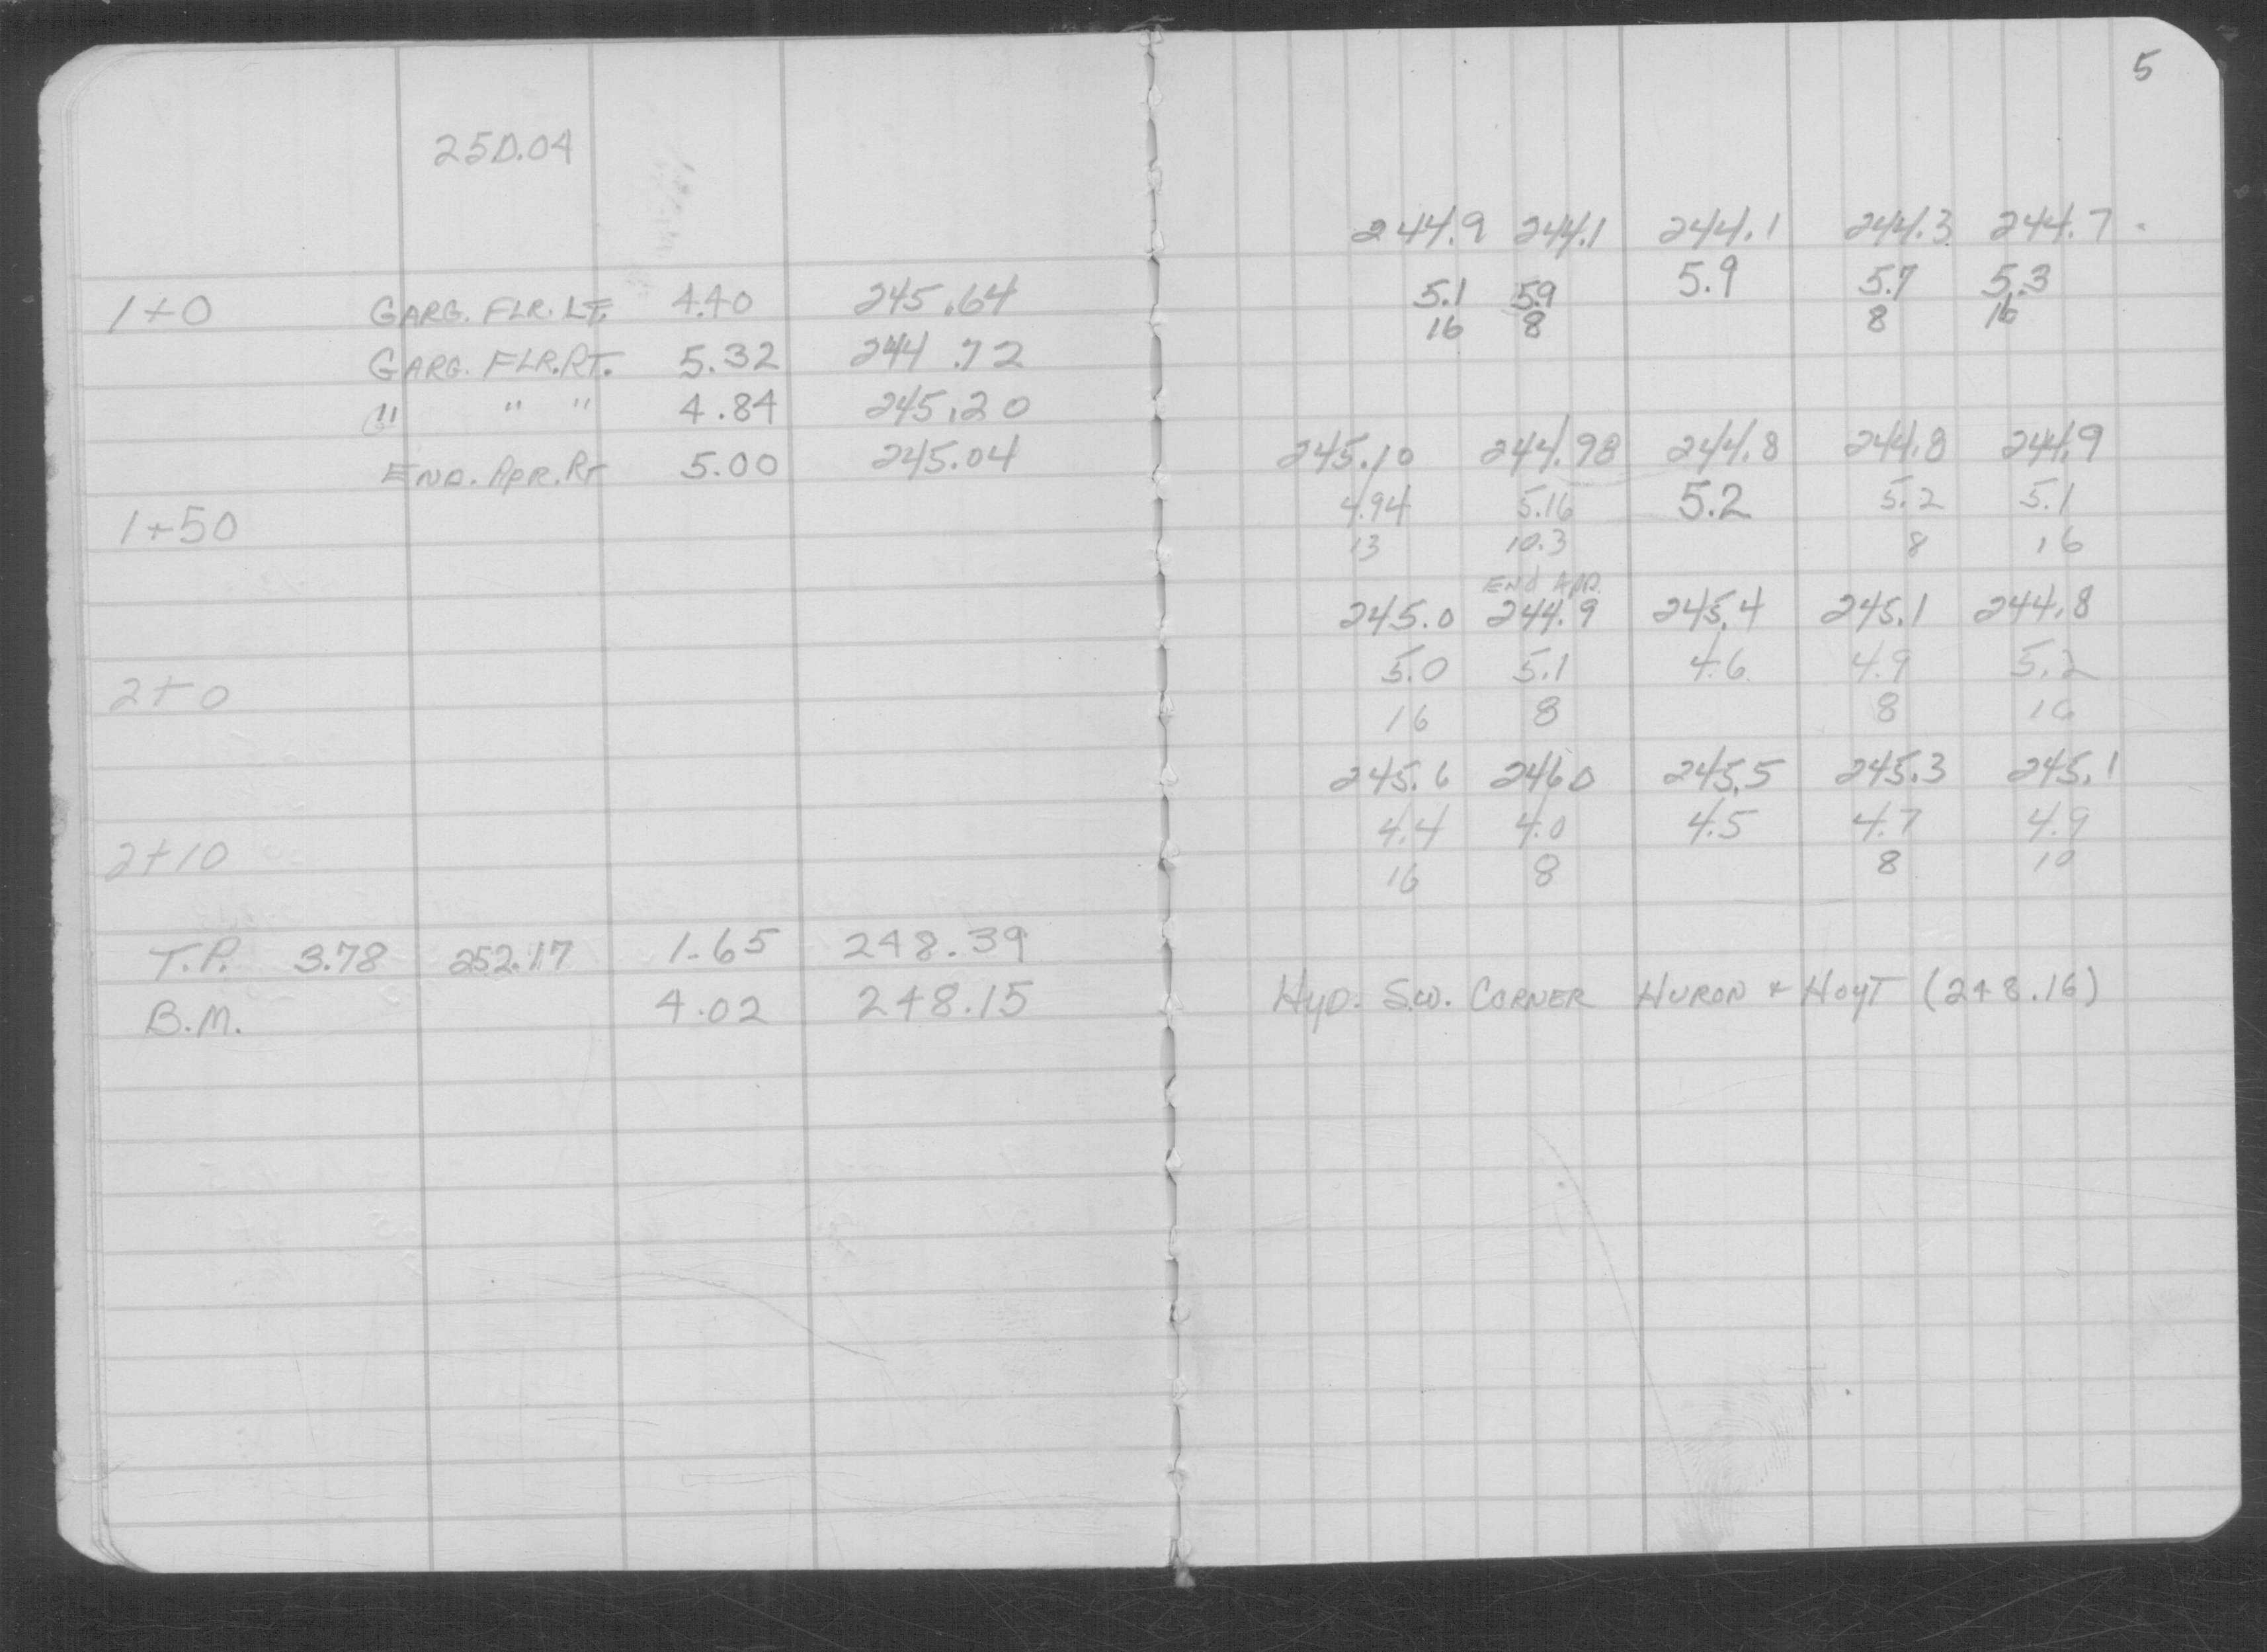 5
250.04
244.9 244.1 244.1 244.3 244.7
1+0 GARG. FLR. LT. 4.40 245.64
5.1 5.9 5.9 5.7 5.3
16 8 8 16
GARG. FLR. RT. 5.32 244.72
" " " 4.84 245.20
END. APR. RT 5.00 245.04
245.10 244.98 244.8 244.8 244.9
1+50
4.94 5.16 5.2 5.2 5.1
13 10.3 8 16
END APR.
245.0 244.9 245.4 245.1 244.8
2+0
5.0 5.1 4.6 4.9 5.2
16 8 8 16
245.6 246.0 245.5 245.3 245.1
2+10
4.4 4.0 4.5 4.7 4.9
16 8 8 10
T.P. 3.78 252.17 1.65 248.39
B.M. 4.02 248.15
HYD. S.W. CORNER HURON + HOYT (248.16)